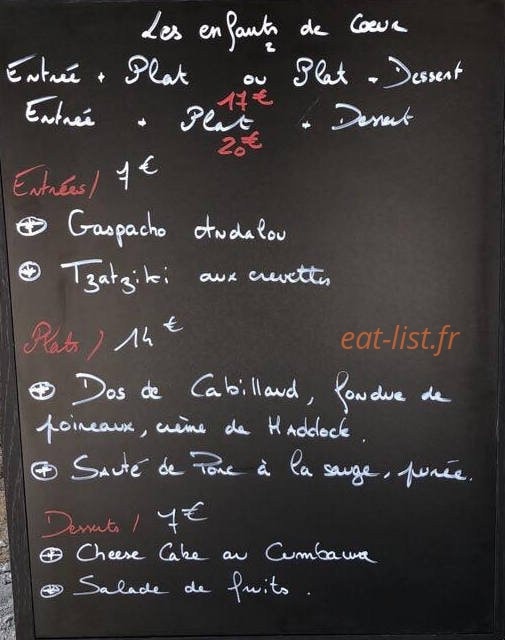 Les enfants de Coeur
Entrée + Plat ou Plat + Dessert
17€
Entrée + Plat + Dessert
20€
Entrées / 7€
Gaspacho Andalou
Tzatziki aux crevettes
Plats / 14€
eat-list.fr
Dos de Cabillaud, fondue de
poireaux, crème de Haddock.
Sauté de Porc à la sauge, purée.
Desserts / 7€
Cheese Cake au Cumbawa
Salade de fruits.